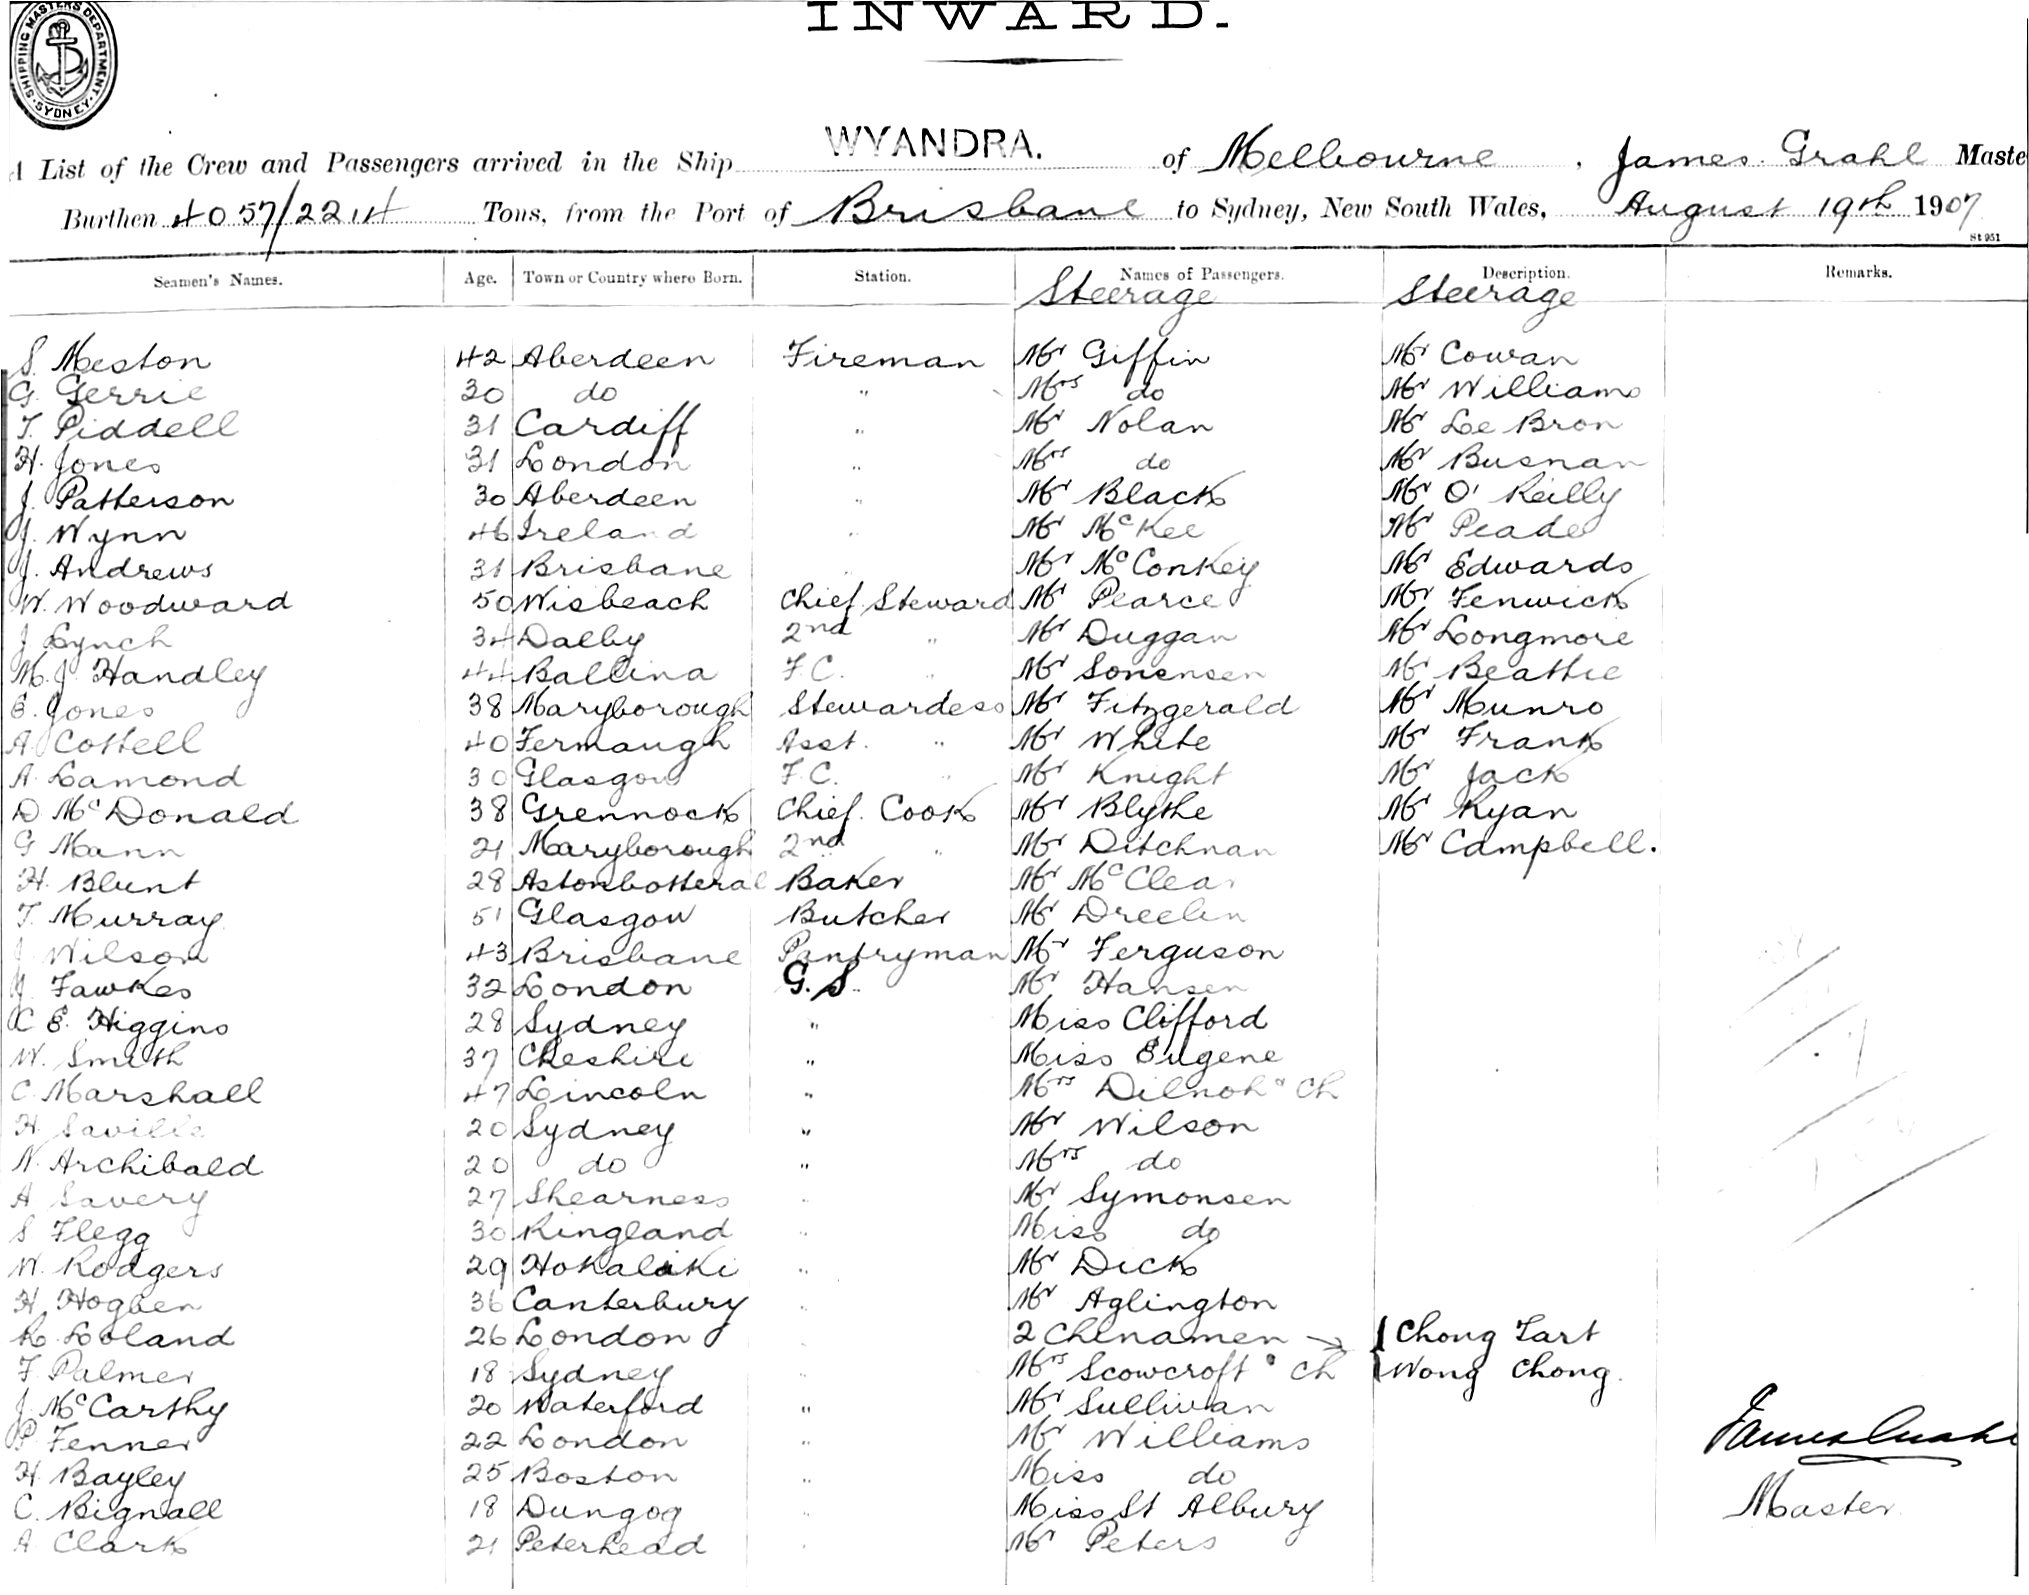 INWARD.
SHIPPING MASTERS DEPARTMENT. SYDNEY.
WYANDRA.
A List of the Crew and Passengers arrived in the Ship of Melbourne, James Grahl Maste
Burthen 4057/2214 Tons, from the Port of Brisbane to Sydney, New South Wales, August 19th 1907
St 951
Seamen's Names. Age. Town or Country where Born. Station. Names of Passengers. Description. Remarks.
Steerage Steerage
S. Meston 42 Aberdeen Fireman Mr Giffin Mr Cowan
G. Gerrie 30 do " Mrs do Mr Williams
T. Piddell 31 Cardiff " Mr Nolan Mr Le Bron
H. Jones 31 London " Mrs do Mr Busnan
J. Patterson 30 Aberdeen " Mr Black Mr O'Reilly
J. Wynn 46 Ireland " Mr McKee Mr Peade
J. Andrews 31 Brisbane " Mr McConkey Mr Edwards
W. Woodward 50 Wisbeach Chief Steward Mr Pearce Mr Fenwick
J Lynch 34 Dalby 2nd " Mr Duggan Mr Longmore
M. J. Handley 44 Ballina F.C. " Mr Sonensen Mr Beattie
E. Jones 38 Maryborough Stewardess Mr Fitzgerald Mr Munro
A. Cottell 40 Fermaugh Asst. " Mr White Mr Frank
A. Lamond 30 Glasgow F.C. " Mr Knight Mr Jack
D McDonald 38 Grennock Chief. Cook Mr Blythe Mr Ryan
G Mann 21 Maryborough 2nd " Mr Ditchnan Mr Campbell.
H. Blunt 28 Astonbotteral Baker Mr McClear
T. Murray 51 Glasgow Butcher Mr Dreelin
J Wilson 43 Brisbane Pantryman Mr Ferguson
J. Fawkes 32 London G.S. Mr Hansen
C E. Higgins 28 Sydney " Miss Clifford
W. Smith 37 Cheshire " Miss Eugene
C. Marshall 47 Lincoln " Mrs Dilnoh & Ch
H. Saville 20 Sydney " Mr Wilson
N. Archibald 20 do " Mrs do
A Savery 27 Shearness " Mr Symonsen
S Flegg 30 Ringland " Miss do
W. Rodgers 29 Hokalaki " Mr Dick
H. Hogben 36 Canterbury " Mr Aglington
L. Loland 26 London " 2 Chinamen → { Chong Tart
F. Palmer 18 Sydney " Mrs Scowcroft & Ch Wong Chong.
J. McCarthy 20 Waterford " Mr Sullivan
P. Fenner 22 London " Mr Williams
H. Bayley 25 Boston " Miss do
C. Bignall 18 Dungog " Miss St Albury
A. Clark 21 Peterhead " Mr Peters
James Grahl
Master